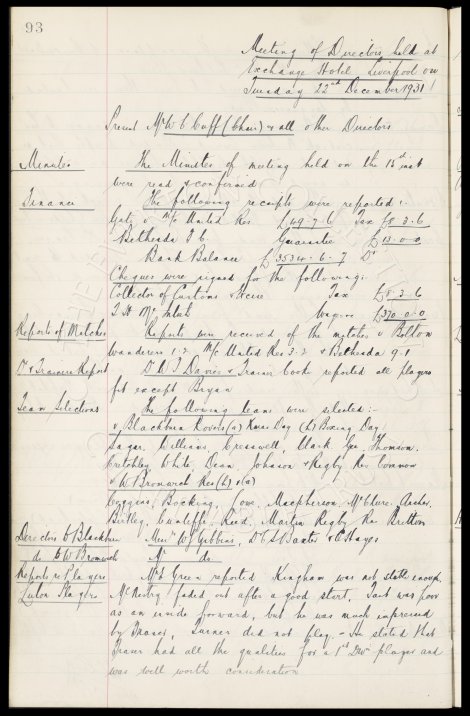 93
Meeting of Directors held at
Exchange Hotel Liverpool on
Tuesday 22nd December 1931
Present Mr W C Cuff (Chair) & all other Directors
Minutes The Minutes of meeting held on the 15th inst
were read & confirmed
Finance The following receipts were reported :-
Gate v M/c United Res £49-7-6 Tax £8-3-6
Bethesda Guarantee £15-0-0
Bank Balance £3534-6-7 Dr
Cheques were signed for the following:
Collector of Customs & Excise Tax £8-3-6
Wages £370-0-0
Reports of Matches Reports were received of the matches v Bolton
Wanderers 1-2 M/c United Res 3-2 & Bethesda 9-1
Dr & Trainers Report Dr D J Davies & Trainer Cooke reported all players
fit except Bryan
Team Selections The following teams were selected:-
v Blackburn Rovers (a) Xmas Day (h) Boxing Day:
Sagar, Williams, Cresswell, Clark Geo, Thomson,
Critchley, White, Dean, Johnson & Rigby Res Common
v W Bromwich Res (h) & (a)
Coggins, Bocking, Lowe, Macpherson, McClure, Archer,
Birtley, Cunliffe, Reed, Martin Rigby Res Bretton
Directors to Blackburn Messrs W J Gibbins, Dr C S Baxter & C Hayes
do to W Bromwich Nil do
Reports re Players Mr Green reported Kingham was not class enough,
Luton Players McNestry faded out after a good start, Tait was poor
as an inside forward, but he was much impressed
by Fraser, Turner did not play. - He stated that
Fraser had all the qualities for a 1st Div player and
was well worth consideration